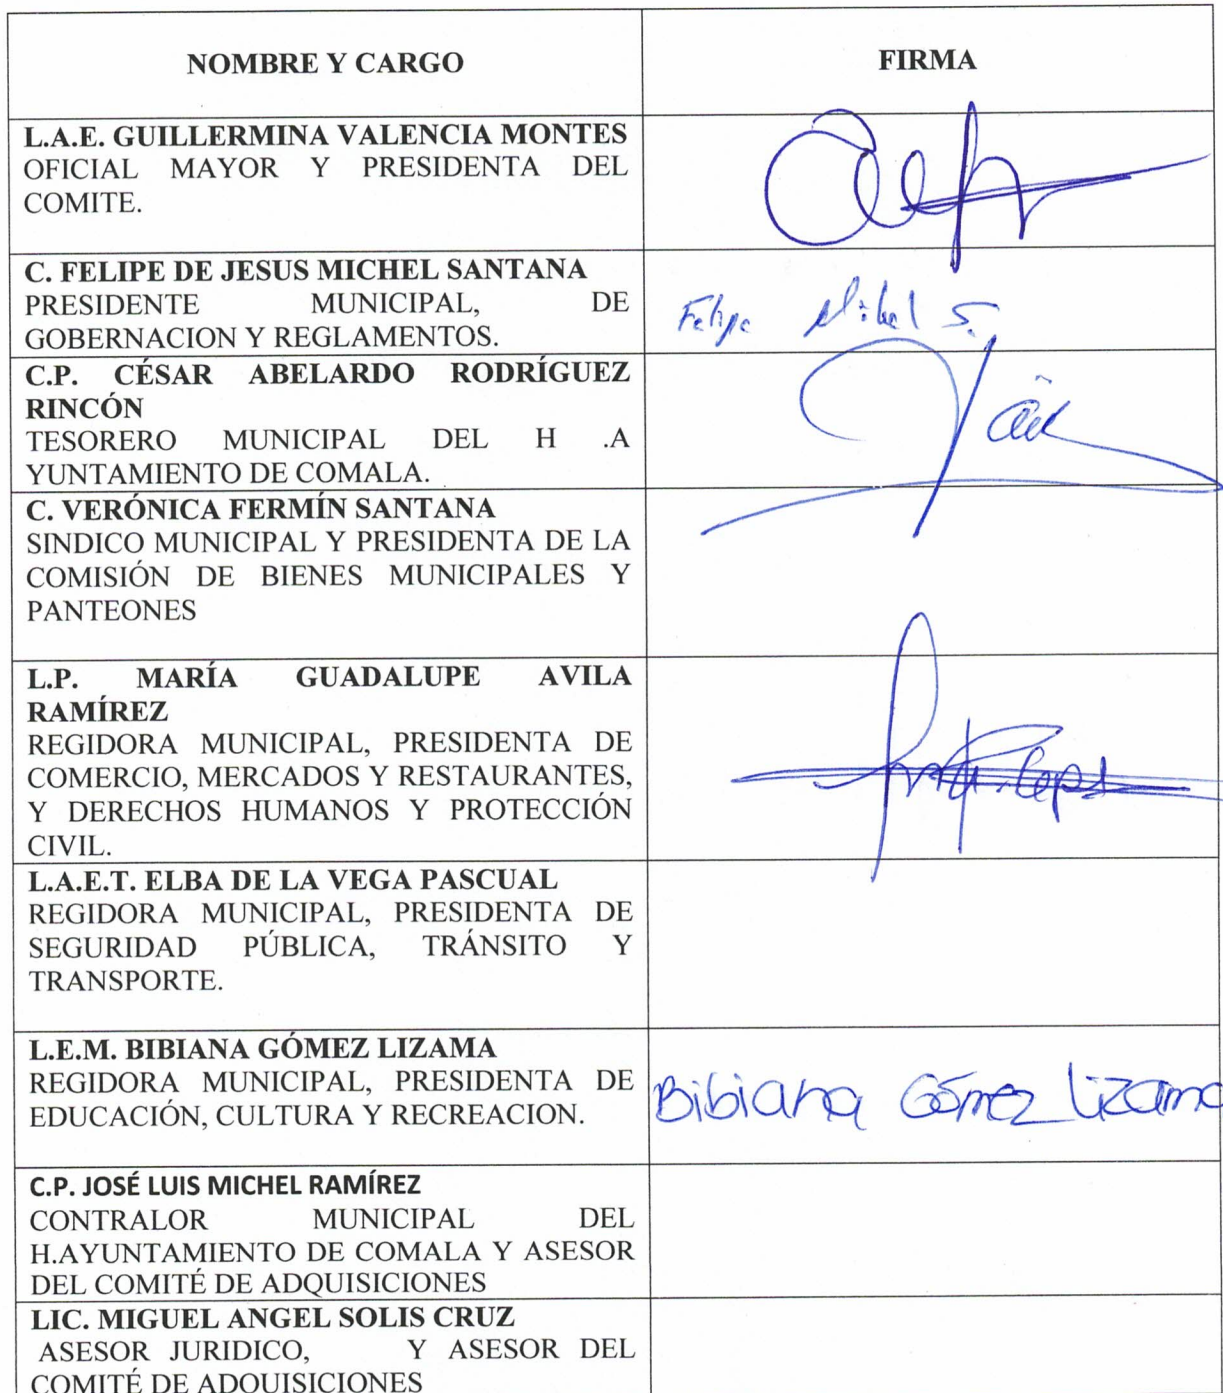 NOMBRE Y CARGO
FIRMA
L.A.E. GUILLERMINA VALENCIA MONTES
OFICIAL MAYOR Y PRESIDENTA DEL
COMITE.
C. FELIPE DE JESUS MICHEL SANTANA
PRESIDENTE MUNICIPAL, DE
GOBERNACION Y REGLAMENTOS.
Felipe Michel S.
C.P. CÉSAR ABELARDO RODRÍGUEZ
RINCÓN
TESORERO MUNICIPAL DEL H .A
YUNTAMIENTO DE COMALA.
C. VERÓNICA FERMÍN SANTANA
SINDICO MUNICIPAL Y PRESIDENTA DE LA
COMISIÓN DE BIENES MUNICIPALES Y
PANTEONES
L.P. MARÍA GUADALUPE AVILA
RAMÍREZ
REGIDORA MUNICIPAL, PRESIDENTA DE
COMERCIO, MERCADOS Y RESTAURANTES,
Y DERECHOS HUMANOS Y PROTECCIÓN
CIVIL.
L.A.E.T. ELBA DE LA VEGA PASCUAL
REGIDORA MUNICIPAL, PRESIDENTA DE
SEGURIDAD PÚBLICA, TRÁNSITO Y
TRANSPORTE.
L.E.M. BIBIANA GÓMEZ LIZAMA
REGIDORA MUNICIPAL, PRESIDENTA DE
EDUCACIÓN, CULTURA Y RECREACION.
Bibiana Gómez Lizama
C.P. JOSÉ LUIS MICHEL RAMÍREZ
CONTRALOR MUNICIPAL DEL
H.AYUNTAMIENTO DE COMALA Y ASESOR
DEL COMITÉ DE ADQUISICIONES
LIC. MIGUEL ANGEL SOLIS CRUZ
ASESOR JURIDICO, Y ASESOR DEL
COMITÉ DE ADQUISICIONES